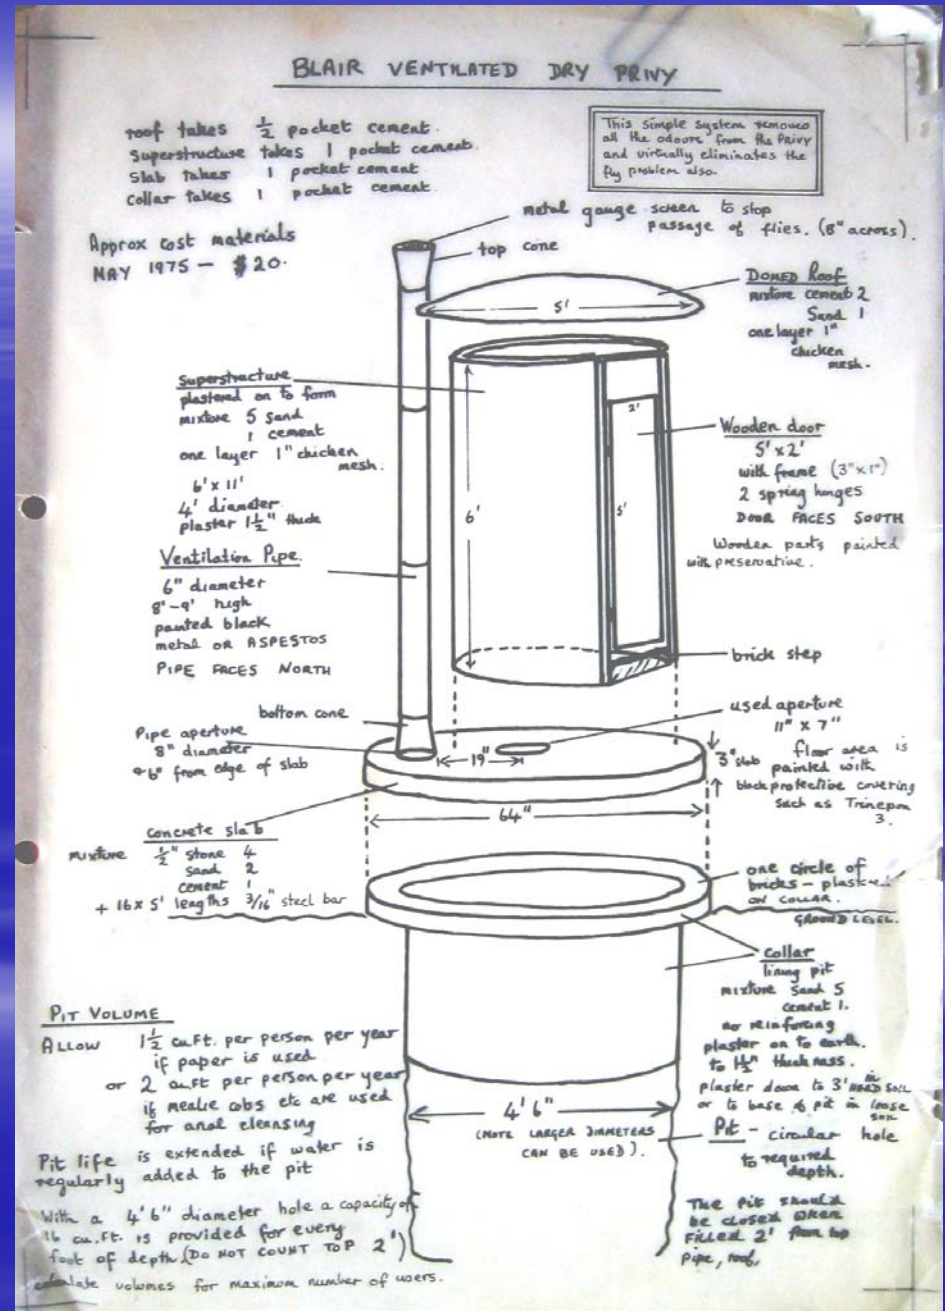 BLAIR VENTILATED DRY PRIVY
roof takes ½ pocket cement.
Superstructure takes 1 pocket cement.
Slab takes 1 pocket cement
Collar takes 1 pocket cement.
This simple system removes
all the odours from the Privy
and virtually eliminates the
fly problem also.
Approx cost materials
MAY 1975 — $20.
metal gauge screen to stop
passage of flies. (8" across).
top cone
DOMED Roof
mixture cement 2
Sand 1
one layer 1"
chicken
mesh.
5'
Superstructure
plastered on to form
mixture 5 sand
1 cement
one layer 1" chicken
mesh.
6' x 11'
4' diameter
plaster 1½" thick
6'
2'
5'
Wooden door
5' x 2'
with frame (3" x 1")
2 spring hinges
DOOR FACES SOUTH
Wooden parts painted
with preservative.
Ventilation Pipe.
6" diameter
8'-9' high
painted black
metal OR ASPESTOS
PIPE FACES NORTH
brick step
bottom cone
Pipe aperture
8" diameter
6" from edge of slab
used aperture
11" x 7"
floor area is
painted with
black protective covering
such as
3.
19"
3" slab
64"
Concrete slab
mixture ½" stone 4
sand 2
cement 1
+ 16 x 5' lengths 3/16" steel bar
one circle of
bricks – plastered
ON COLLAR.
GROUND LEVEL.
Collar
lining pit
mixture sand 5
cement 1.
no reinforcing
plaster on to earth.
to 1½" thickness.
plaster down to 3' in HARD SOIL
or to base of pit in loose
soil
4' 6"
(NOTE LARGER DIAMETERS
CAN BE USED).
Pit – circular hole
to required
depth.
The pit should
be closed when
filled 2' from top
pipe, roof,
PIT VOLUME
ALLOW 1½ cu.ft. per person per year
if paper is used
or 2 cu.ft per person per year
if mealie cobs etc are used
for anal cleansing
Pit life is extended if water is
regularly added to the pit
With a 4' 6" diameter hole a capacity of
16 cu.ft. is provided for every
foot of depth (DO NOT COUNT TOP 2')
calculate volumes for maximum number of users.